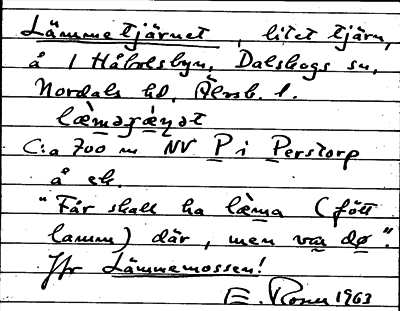 Lämmetjärnet, litet tjärn,
å 1 Håbolsbyn, Dalskogs sn,
Nordals hd, Älvsb. l.
C:a 700 m NV P i Perstorp
å ek.
"Får skall ha läma (fött
lamm) där, men va dø".
Jfr Lämmemossen!
E. Rosen 1963